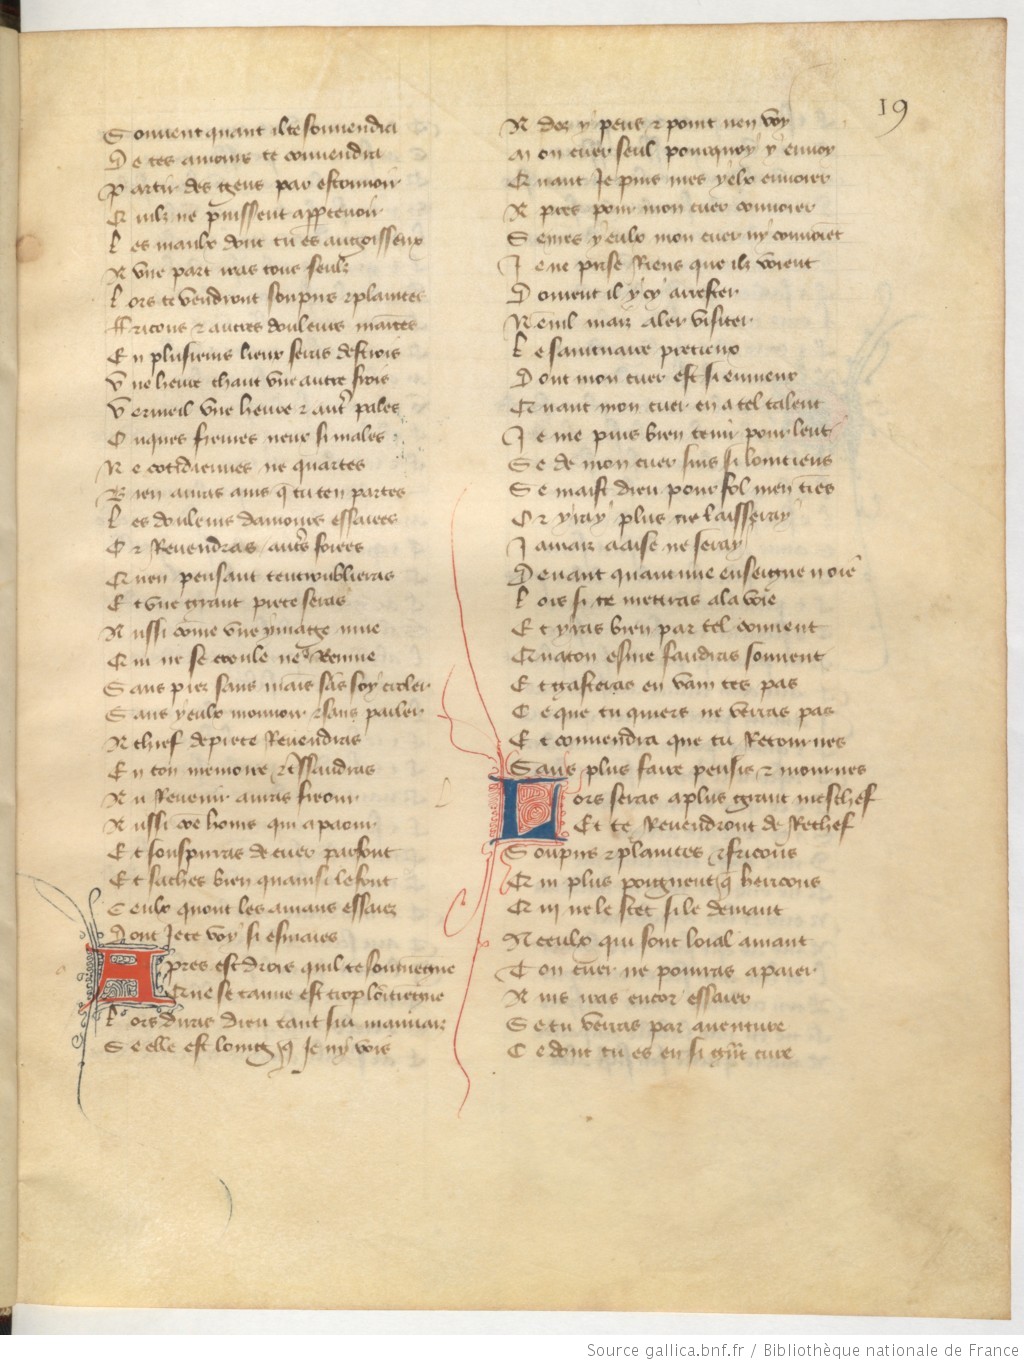 19
Souuent quant il te souuendra
De tes amours te conuendra
Partir des gens par estouuoir
Quilz ne puissent apperceuoir
Les maulx dont tu es angoisseux
A vne part iras tout seulz
Lors te vendront souspirs & plaintes
Fricons & autres douleurs maintes
En plusieurs lieux seras destrois
Vne heure chaut vne autre frois
Vermeil vne heure & autre pales
Onques fieures neus si males
Ne cotidiennes ne quartes
Bien auras ains que tu ten partes
Les douleurs damours essaiees
Or Reuendras autres foiees
Quen pensant tentroublieras
Et vne grant piece seras
Aussi come vne ymaige mue
Qui ne se croule ne Remue
Sans piez sans mains sans soy croler
Sans yeulx mouuoir & sans parler
A chief de piece Reuendras
En ton memoire & tressaudras
Au Reuenir auras freour
Aussi coe homs qui a paour
Et souspirras de cuer parfont
Et saches bien quainsi le font
Ceulx quont les amans essaiez
Dont je te voy si esmaies
Apres est drois quil te souuiegne
Que ta mie est trop loitiegne
Lors diras dieu tant sui mauuaiz
Se elle est loing & que je ny vois
A dez y pens & point nen voy
Mon cuer seul pourquoy y enuoy
Quant Je puis mes yeulx enuoier
Apres pour mon cuer conuoier
Se mes yeulx mon cuer ny conuoient
Je ne prise Riens que ilz voient
Doiuent il ycy arrester
Nennil maiz aler visiter
Le saintuaire precieux
Dont mon cuer est si enuieux
Quant mon cuer en a tel talent
Je me puis bien tenir pour lent
Se de mon cuer suis si loingtiens
Se maist dieu pour fol men tiens
Or yray plus ne laisseray
Jamaiz aaise ne seray
Deuant quaucune enseigne noie
Lors si te mettras a la voie
Et yras bien par tel conuent
Qua ton esme faudras souuent
Et gasteras en vain tes pas
Ce que tu quiers ne verras pas
Et conuendra que tu Retournes
Sans plus faire pensis & mournes
Lors seras a plus grant meschef
Et te Reuendront de Rechef
Souspirs & plaintes & fricons
Qui plus poignent que hericons
Qui ne le scet si le demant
A ceulx qui sont loial amant
Ton cuer ne pourras apaier
Ains iras encor essaier
Se tu verras par auenture
Ce dont tu es en si grant cure